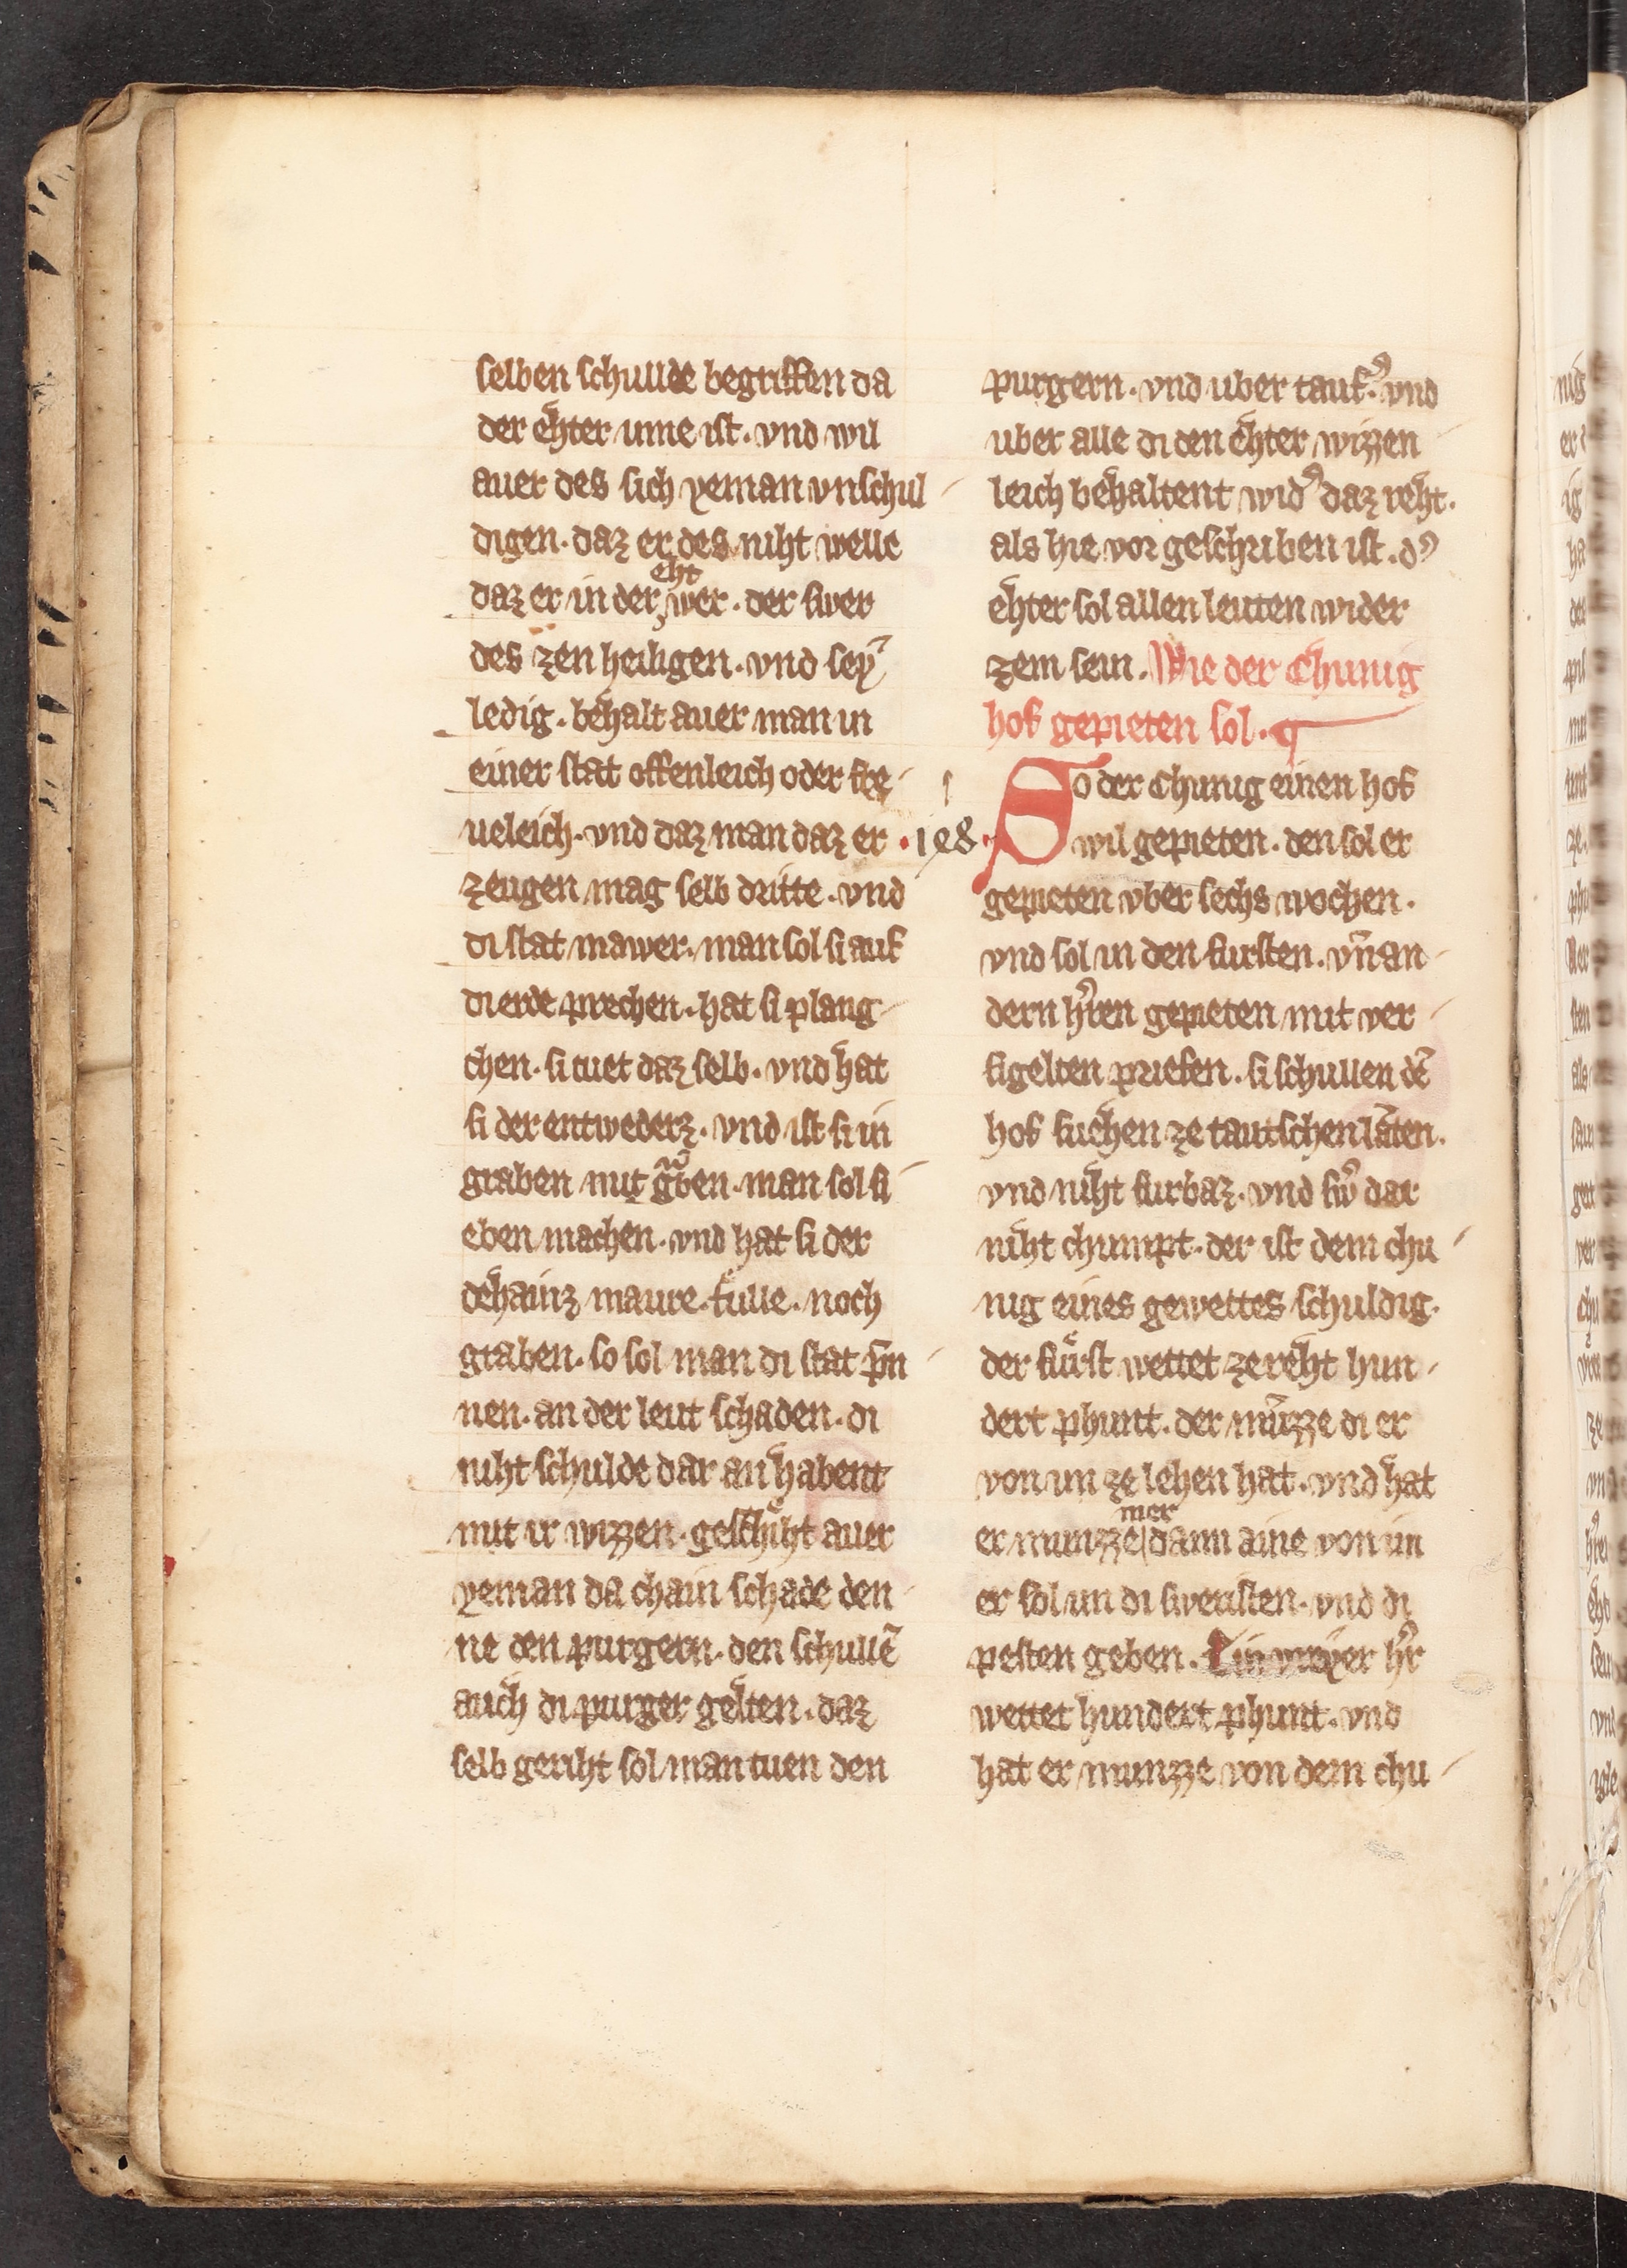 selben schullde begriffen da
der ehter inne ist. vnd wil
auer des sich yeman vnschul-
digen. daz er des niht welle
eht
daz er in der wer. der swer
des zen heiligen. vnd sey
ledig. behalt auer man in
einer stat offenleich oder fre-
ueleich. vnd daz man daz er
zeugen mag selb dritte. vnd
di stat mawer. man sol si auf
di erde prechen. hat si plang-
chen. si tuet daz selb. vnd hat
si der entwederz. vnd ist si in
graben mit gben. man sol si
eben machen. vnd hat si der
dehainz maure. tulle. noch
graben. so sol man di stat p̄n-
nen. an der leut schaden. di
niht schulde dar an habent
mit ir wizzen. geschiht auer
yeman da chain schade den-
ne den purgern. den schullē
auch di purger gelten. daz
selb geriht sol man tuen den
purgern. vnd uber tauf. vnd
uber alle di den ehter wizzen-
leich behaltent wid' daz reht.
als hie vor geschriben ist. d'
ehter sol allen leuten wider
zem sein. Wie der Chunig
hof gepieten sol. ¶
·198· So der Chunig einen hof
wil gepieten. den sol er
gepieten vber sechs wochen.
vnd sol in den fursten. vn̄ an-
dern h'ren gepieten mit ver-
sigelten priefen. si schullen dē
hof suchen ze tautschen lāten.
vnd niht furbaz. vnd sw' dar
niht chumpt. der ist dem chu-
nig eines gewettes schuldig.
der fuͤrst wettet ze reht hun-
dert phunt. der mu̅zze di er
von im ze lehen hat. vnd hat
mer
er munzze dann aine von im
er sol im di sweristen. vnd di
pesten geben. Ein vreyer h'r
wettet hundert phunt. vnd
hat er munzze von dem chu-